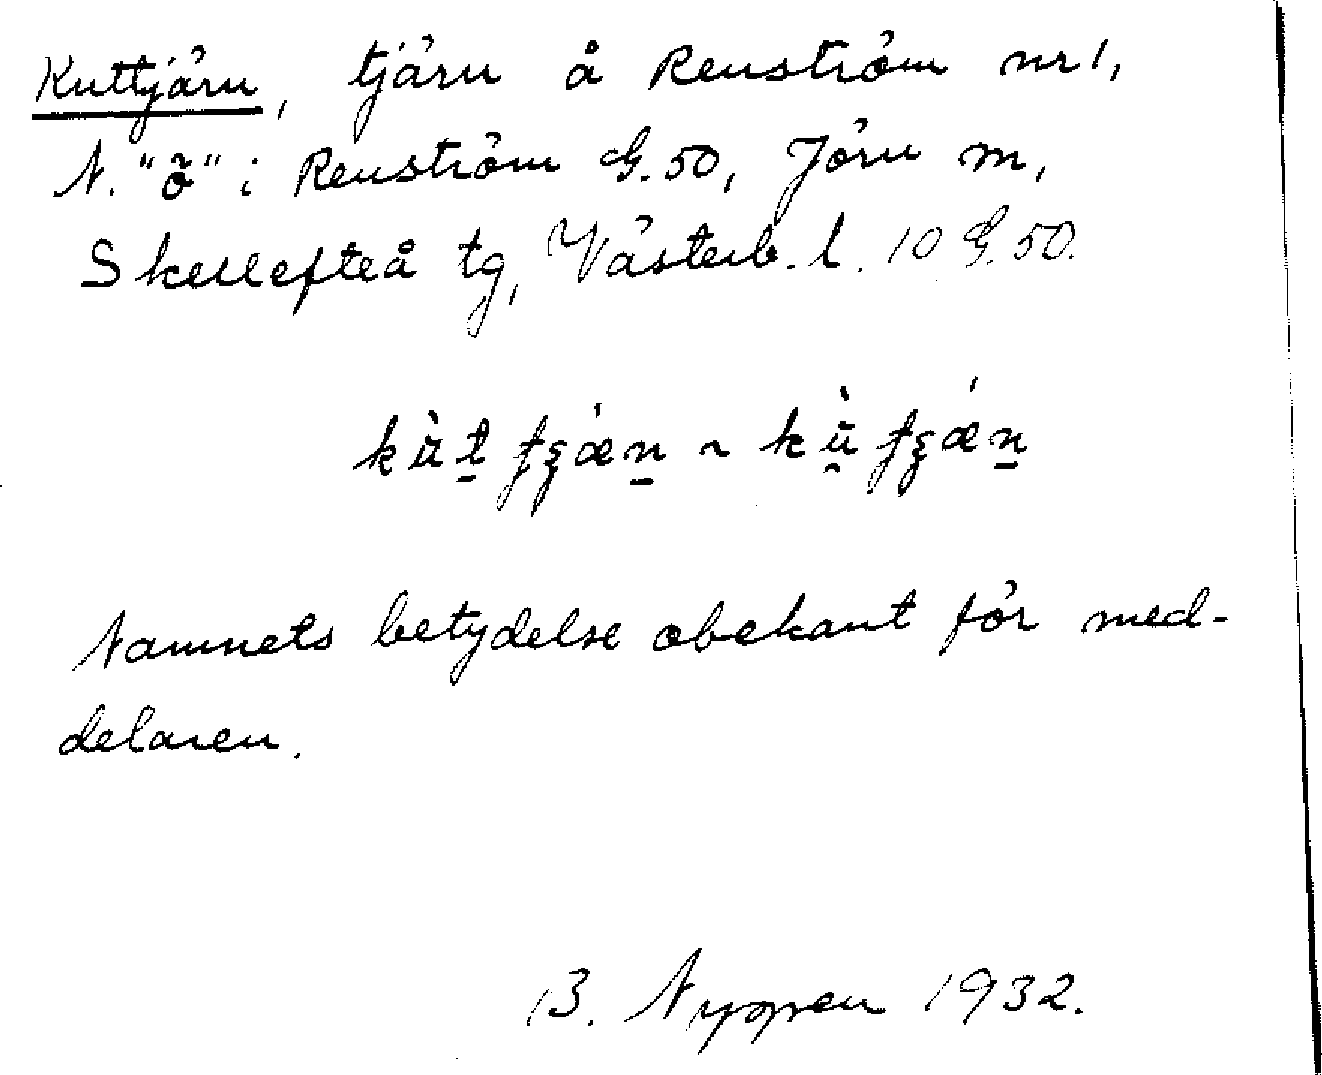 Kuttjärn, tjärn å Renström nr 1,
N. "ö" i Renström G. 50, Jörn sn,
Skellefteå tg, Västerb. l. 10 G. 50.
Namnets betydelse obekant för med-
delaren.
B. 1932.